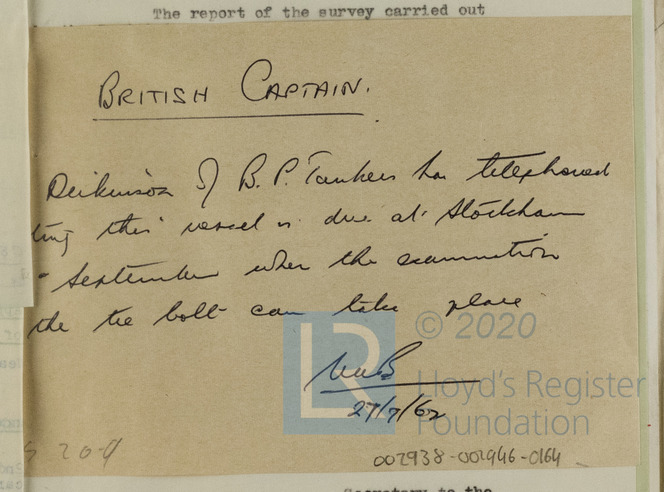 The report of the survey carried out
BRITISH CAPTAIN.
Dickinson of B.P. Tankers has telephoned
ting this vessel is due at Stockham
September when the examination
the tie bolt can take place
27/7/62
LR
© 2020
Lloyd's Register
Foundation
002938-002946-0164
Secretary to the